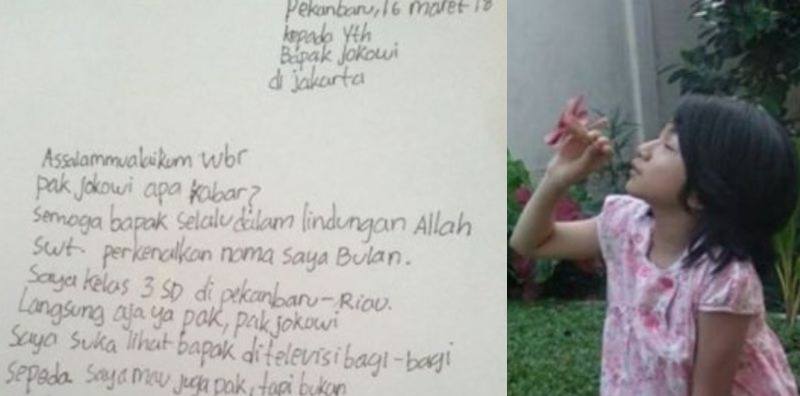 Pekanbaru, 16 maret 18
kepada Yth
Bapak Jokowi
di jakarta
Assalammualaikum wbr
pak jokowi apa kabar?
semoga bapak selalu dalam lindungan Allah
swt. perkenalkan nama saya Bulan.
Saya kelas 3 SD di pekanbaru-Riau.
Langsung aja ya pak, pak jokowi
Saya suka lihat bapak ditelevisi bagi-bagi
sepeda saya mau juga pak, tapi bukan